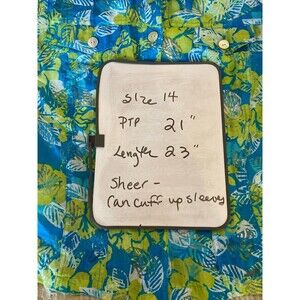 Size 14
PTP 21"
Length 23"
Sheer -
Can cuff up sleeves